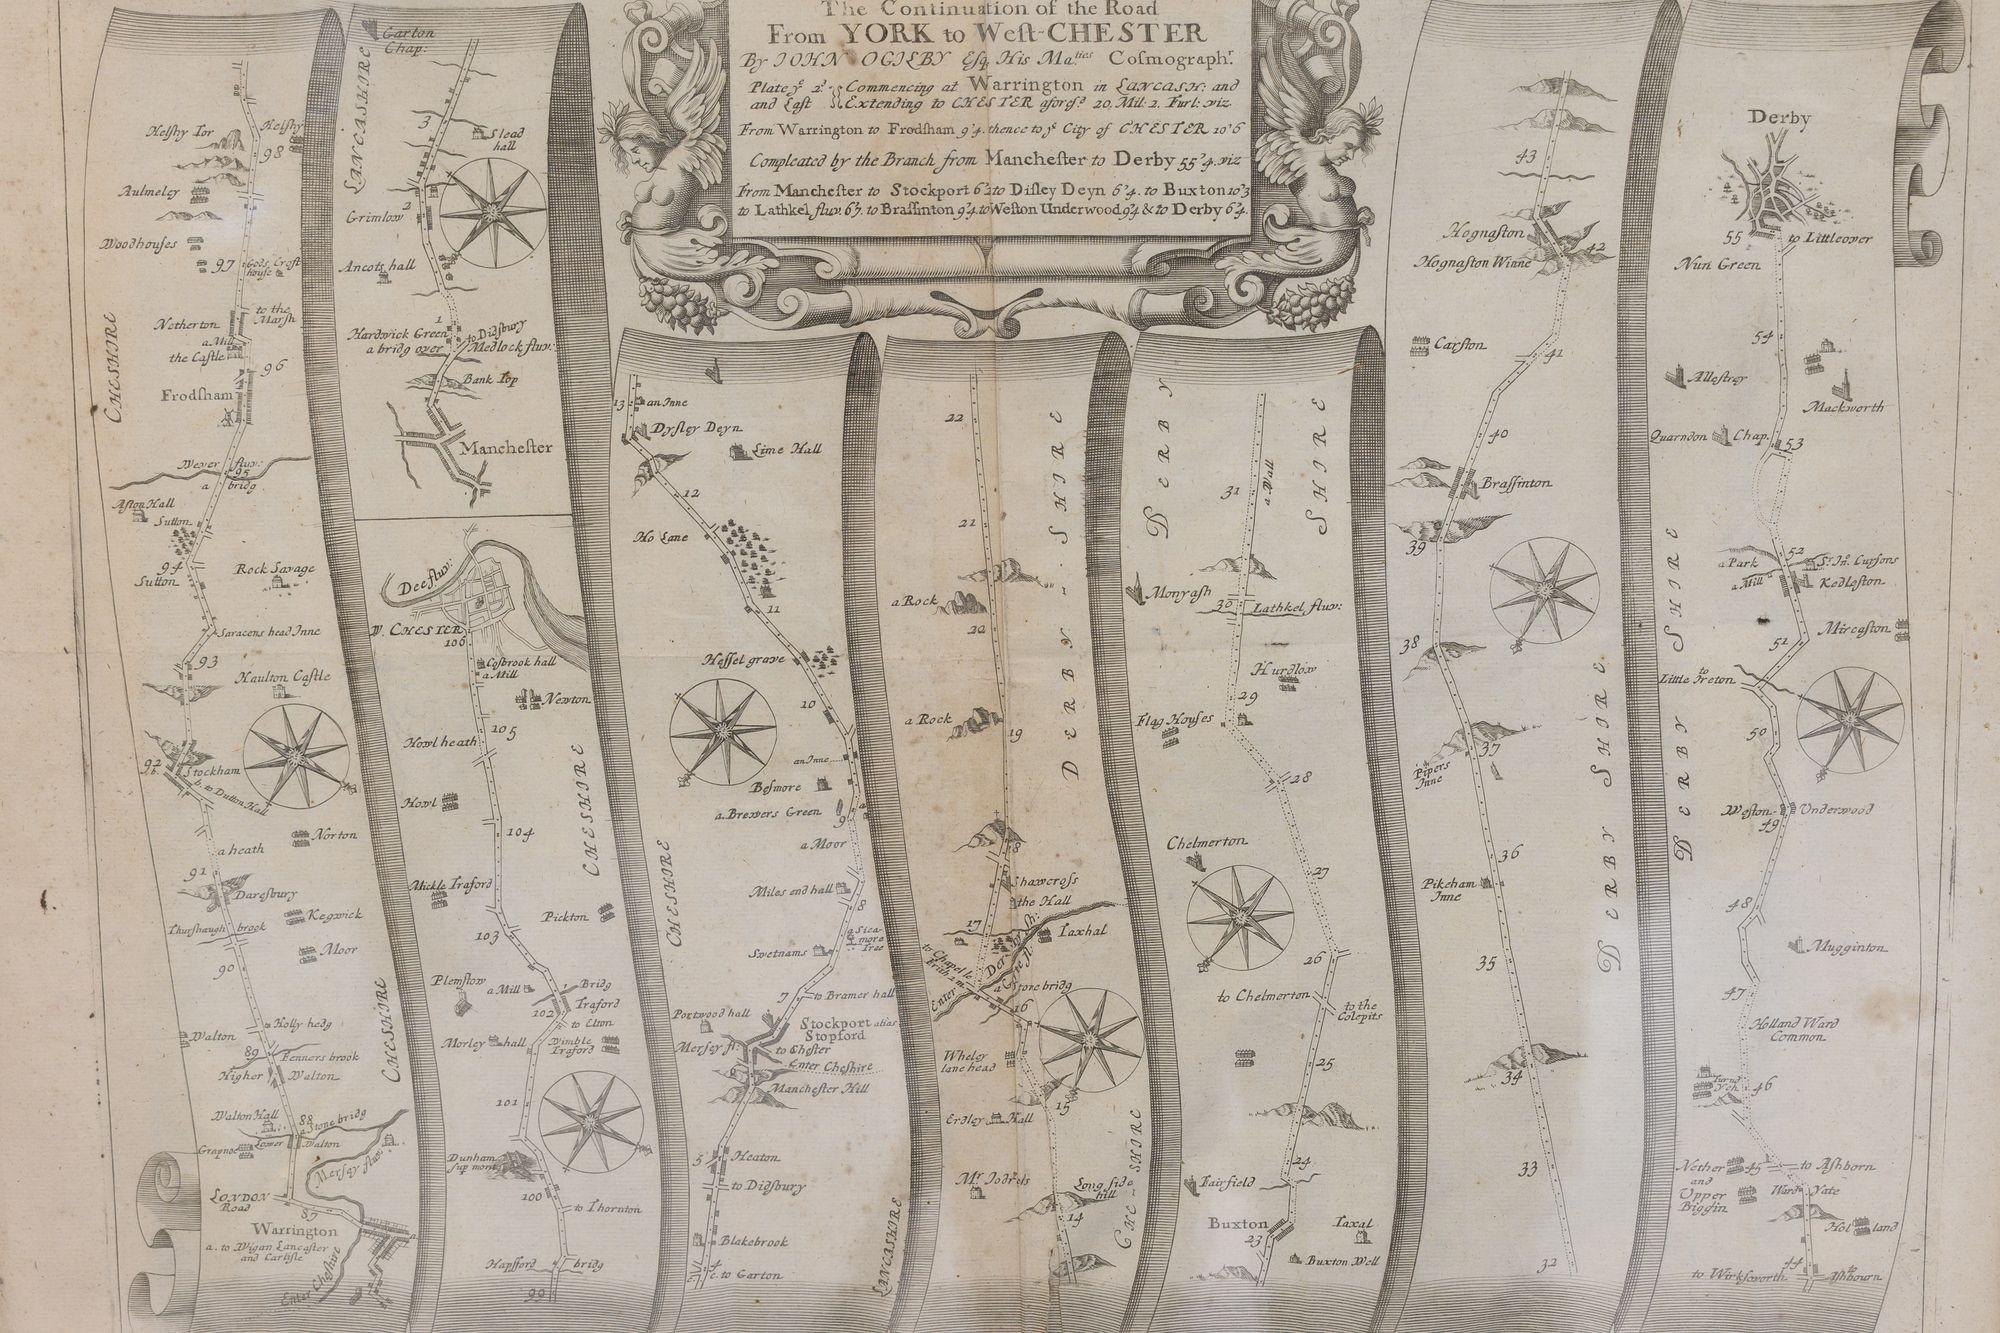 The Continuation of the Road
From YORK to West-CHESTER
By IOHN OGILBY Esq. His Ma.ties Cosmograph.r
Plate ye 2d. Commencing at Warrington in LANCASH: and
and Last Extending to CHESTER afores.d 20. Mil: 2. Furl: viz.
From Warrington to Frodsham 9'4. thence to ye City of CHESTER 10'6
Compleated by the Branch from Manchester to Derby 55'4. viz
From Manchester to Stockport 6'2 to Disley Deyn 6'4. to Buxton 10'3
to Lathkel fluv. 6'7. to Brassinton 9'4. to Weston Underwood 9'4 & to Derby 6'4.
Helsby Tor
Helsby
98
Aulmeley
Woodhouses
97
Gods Croft
house
CHESHIRE
Netherton
to the
Marsh
a Mill
the Castle
96
Frodsham
Wever fluv:
95
a bridg
Aston Hall
Sutton
94
Sutton
Rock Savage
Saracens head Inne
93
Haulton Castle
92
Stockham
b. to Dutton Hall
Norton
a heath
91
Daresbury
Kegwick
Thursbaugh brook
Moor
90
Holly hedg
Walton
89
Fenners brook
Higher Walton
Walton Hall
88
a Stone bridg
Grapnoe
Lower Walton
Mersey fluv:
LONDON
Road
87
Warrington
a. to Wigan Lancaster
and Carlisle
Enter Cheshire
CHESHIRE
Garton
Chap:
LANCASHIRE
3
Slead
hall
2
Grimlow
Ancots hall
1
Hardwick Green
to Didsbury
a bridg over Medlock fluv:
Bank Top
Manchester
Dee fluv:
W. CHESTER
106
Cosbrook hall
a Mill
Newton
105
Howl heath
CHESHIRE
Howl
104
Mickle Traford
Pickton
103
Plemstow
a Mill
Bridg
Traford
102
to Elton
Morley hall
Wimble
Traford
101
Dunham
sup mont
100
to Thornton
Hapsford bridg
99
13
an Inne
Dysley Deyn
Lime Hall
12
Ho Lane
11
Hessel grave
10
an Inne
Besmore
a Brewers Green
9
a Moor
CHESHIRE
Miles end hall
8
a Sica-
more
Tree
Swetnams
7
to Bramer hall
Portwood hall
Stockport alias
Stopford
Mersey fl:
to Chester
Enter Cheshire
Manchester Hill
5
Heaton
to Didsbury
Blakebrook
4
c. to Garton
LANCASHIRE
22
21
DERBY-SHIRE
a Rock
20
a Rock
19
18
Shawcross
the Hall
17
Taxhal
to Chapel le
Frith 2 m.
Enter Derbysh:
a Stone bridg
16
Wheley
lane head
15
Erdley Hall
Mr. Iodrels
Long side
hill
14
CHE-SHIRE
DERBY SHIRE
31
a Wall
Monyash
30
Lathkel fluv:
Hurdlow
29
Flag Houses
28
Chelmerton
27
26
to Chelmerton
to the
Colepits
25
24
Fairfield
Buxton
23
Taxal
Buxton Well
43
Hognaston
42
Hognaston Winne
Carston
41
40
Brassinton
39
38
37
Pipers
Inne
DERBY SHIRE
36
Pikeham
Inne
35
34
33
32
Derby
55
to Littleover
Nun Green
54
Allestrey
Mackworth
Quarndon
Chap.
53
DERBY SHIRE
52
a Park
a Mill
Sr. In. Cursons
Kedleston
Mircaston
51
to
Little Ireton
50
Weston Underwood
49
48
Mugginton
47
Holland Ward
Common
46
Nether
and
Upper
Biggin
45
to Ashborn
Ward Yate
Holland
44
to Wirksworth
to
Ashbourn